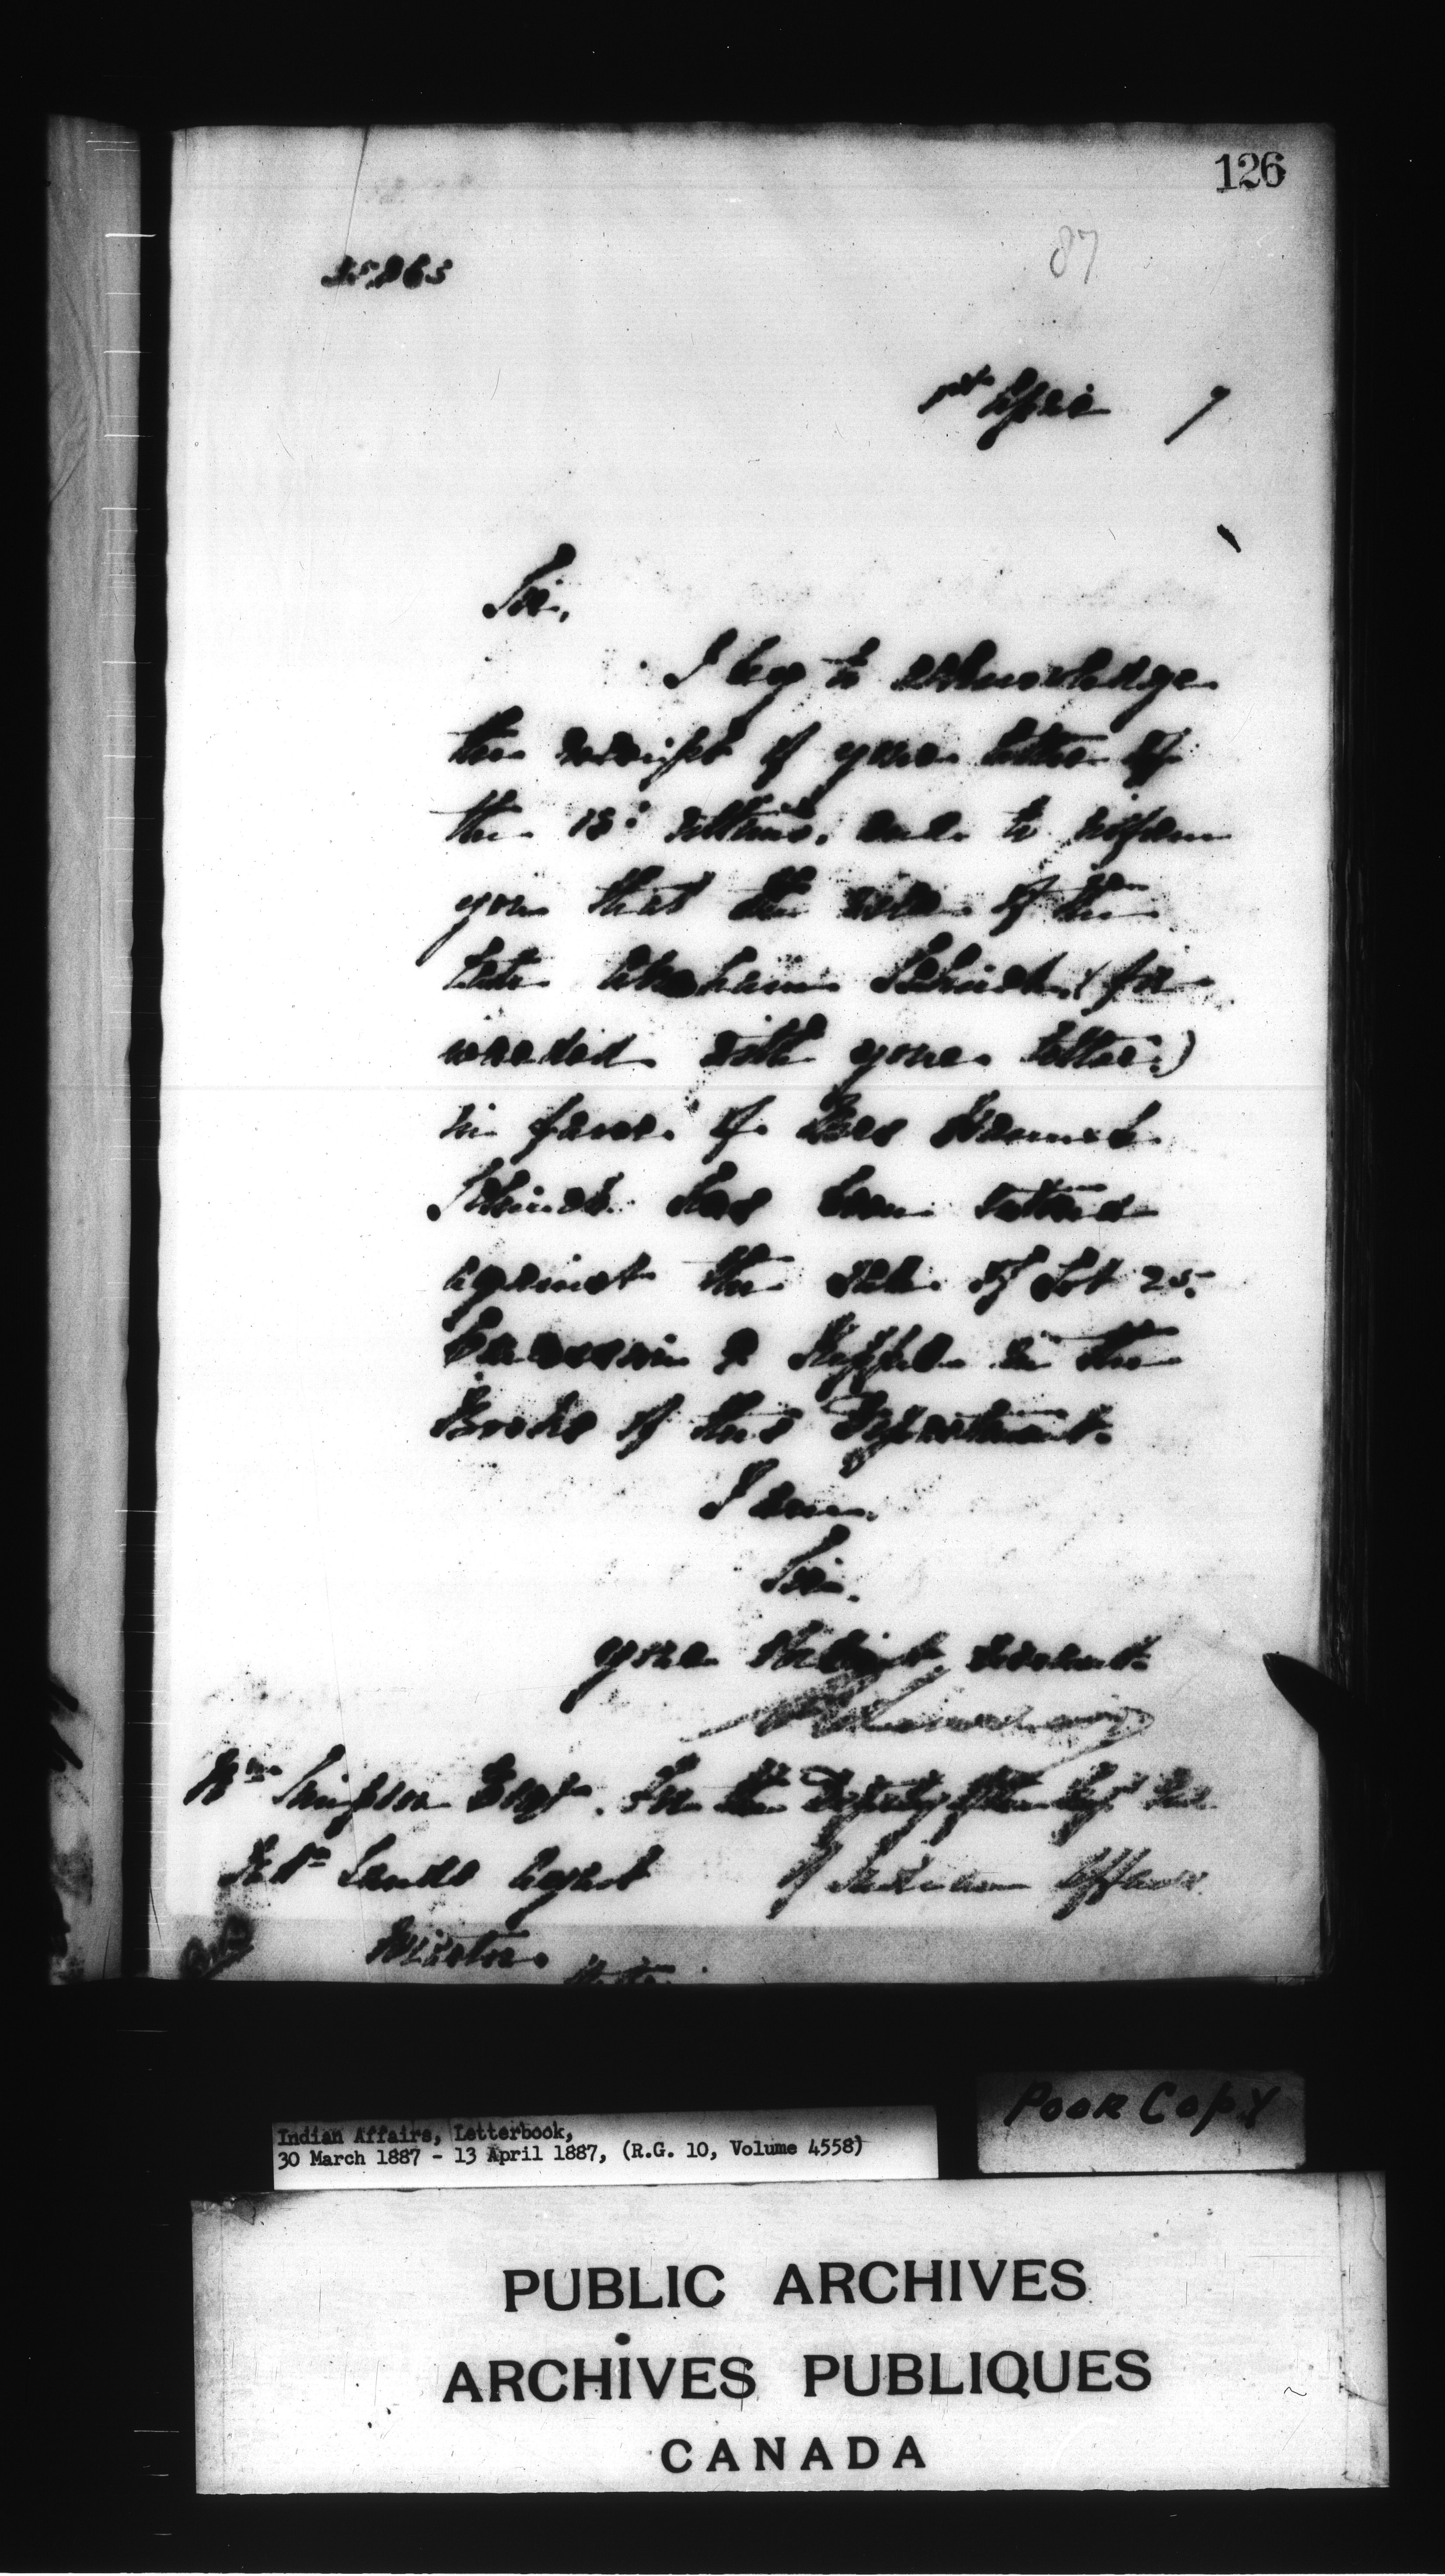 126
87
1st April 7
Sir,
I beg to acknowledge
the receipt of your letter of
the 18: ultimo, and to inform
you that the will of the
late Abraham Schiedt, (for
warded with your letter.)
in favor of Mrs Hannah
Schiedt has been entered
against the sale of Lot 25.
Concession 2 Keppel in the
Books of this Department.
I am.
Sir.
your obedient servant.
Wm Simpson Esqr. For the Deputy of the Supt Gen
Indn Lands Agent of Indian Affairs.
Wiarton.
Indian Affairs, Letterbook,
30 March 1887 - 13 April 1887, (R.G. 10, Volume 4558)
Poor Copy
PUBLIC ARCHIVES
ARCHIVES PUBLIQUES
CANADA